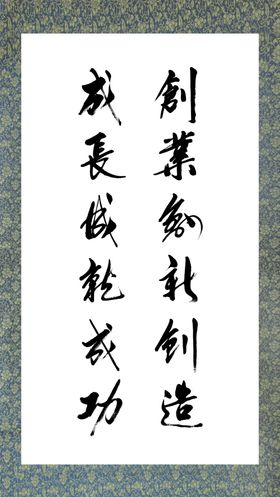 創業創新創造
成長成就成功